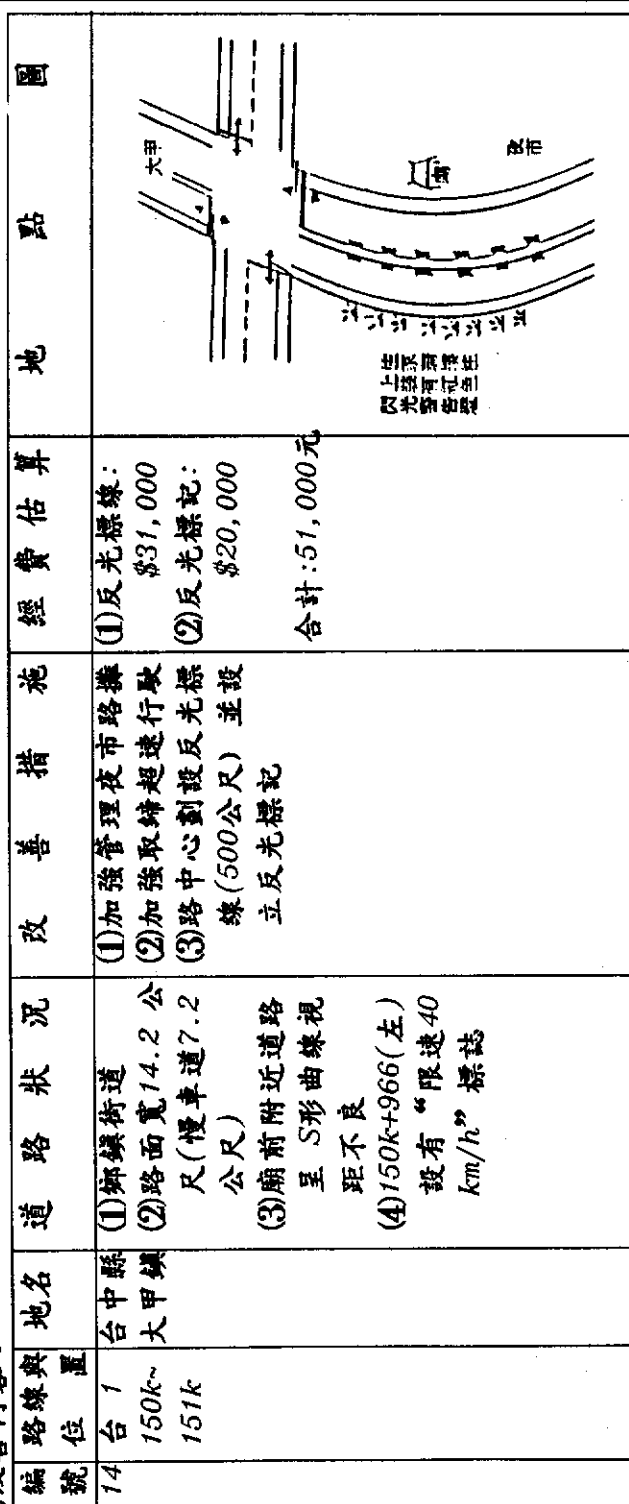 編號
路線與位置
地名
道路狀況
改善措施
經費估算
地點圖
14
台 1
150k~
151k
台中縣
大甲鎮
(1)鄉鎮街道
(2)路面寬14.2 公
尺(慢車道7.2
公尺)
(3)廟前附近道路
呈 S形曲線視
距不良
(4)150k+966(左)
設有“限速40
km/h”標誌
(1)加強管理夜市路攤
(2)加強取締超速行駛
(3)路中心劃設反光標
線(500公尺) 並設
立反光標記
(1)反光標線:
$31,000
(2)反光標記:
$20,000
合計:51,000元
大甲
廟
夜市